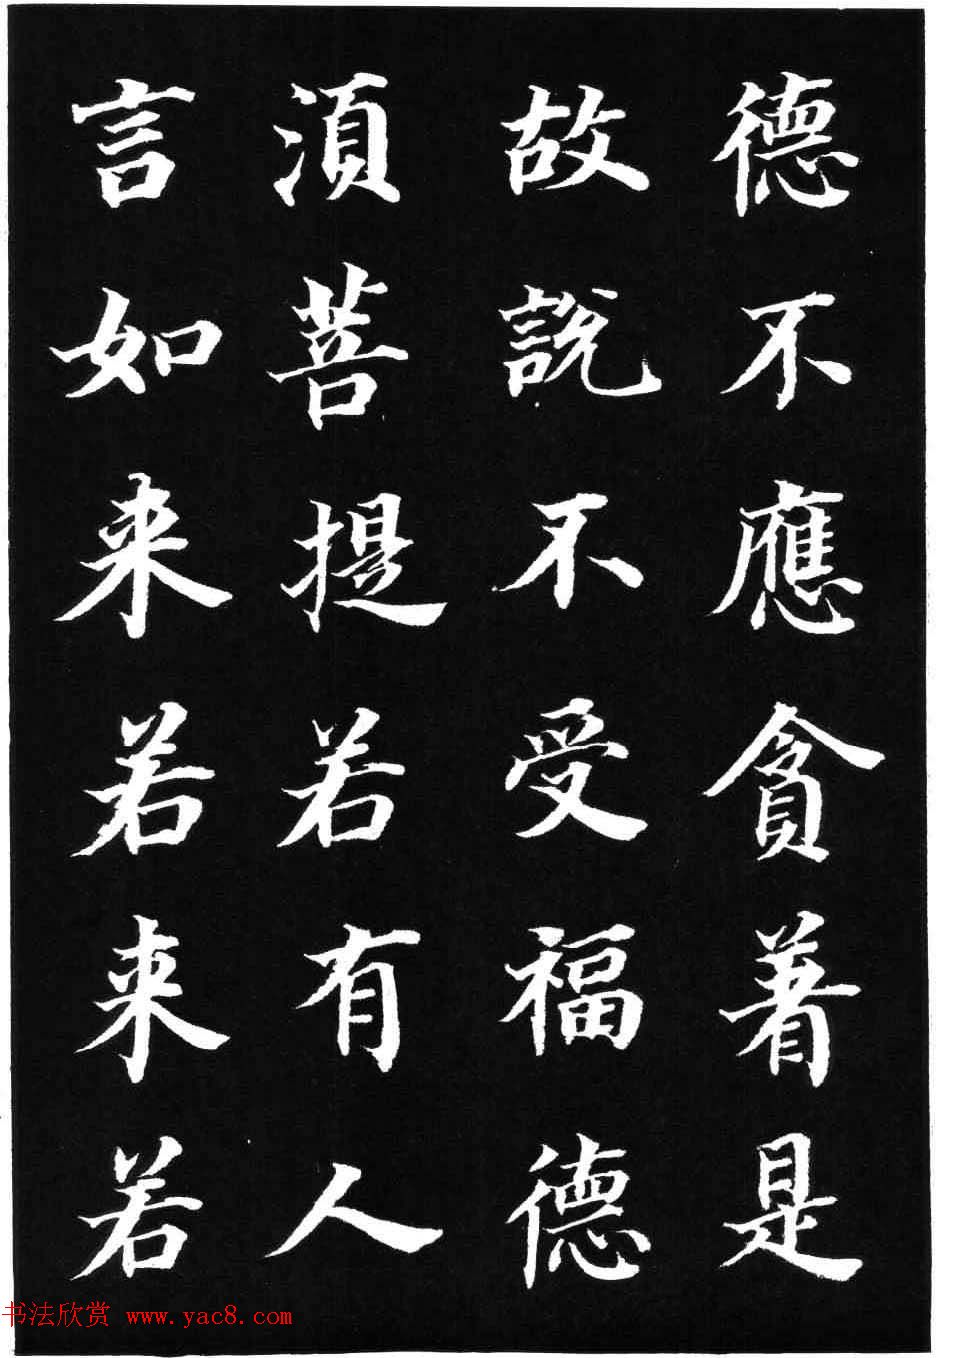 德不應貪著是
故說不受福德
湏菩提若有人
言如来若来若
书法欣赏 www.yac8.com